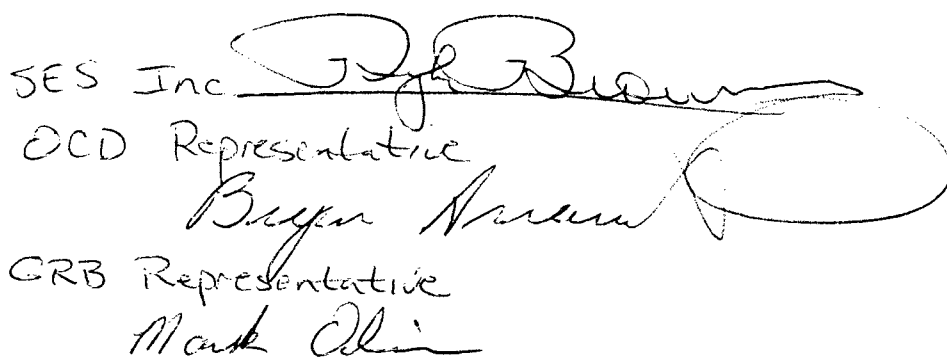 SES Inc. Brown
OCD Representative
Bryan
GRB Representative
Mark